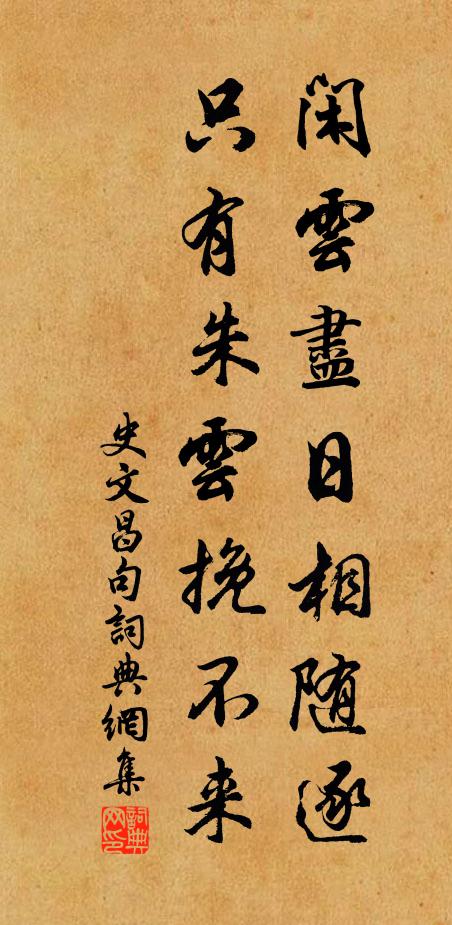 閑雲盡日相随逐
只有朱雲挽不来
史文昌句詞典網集
詞典网印